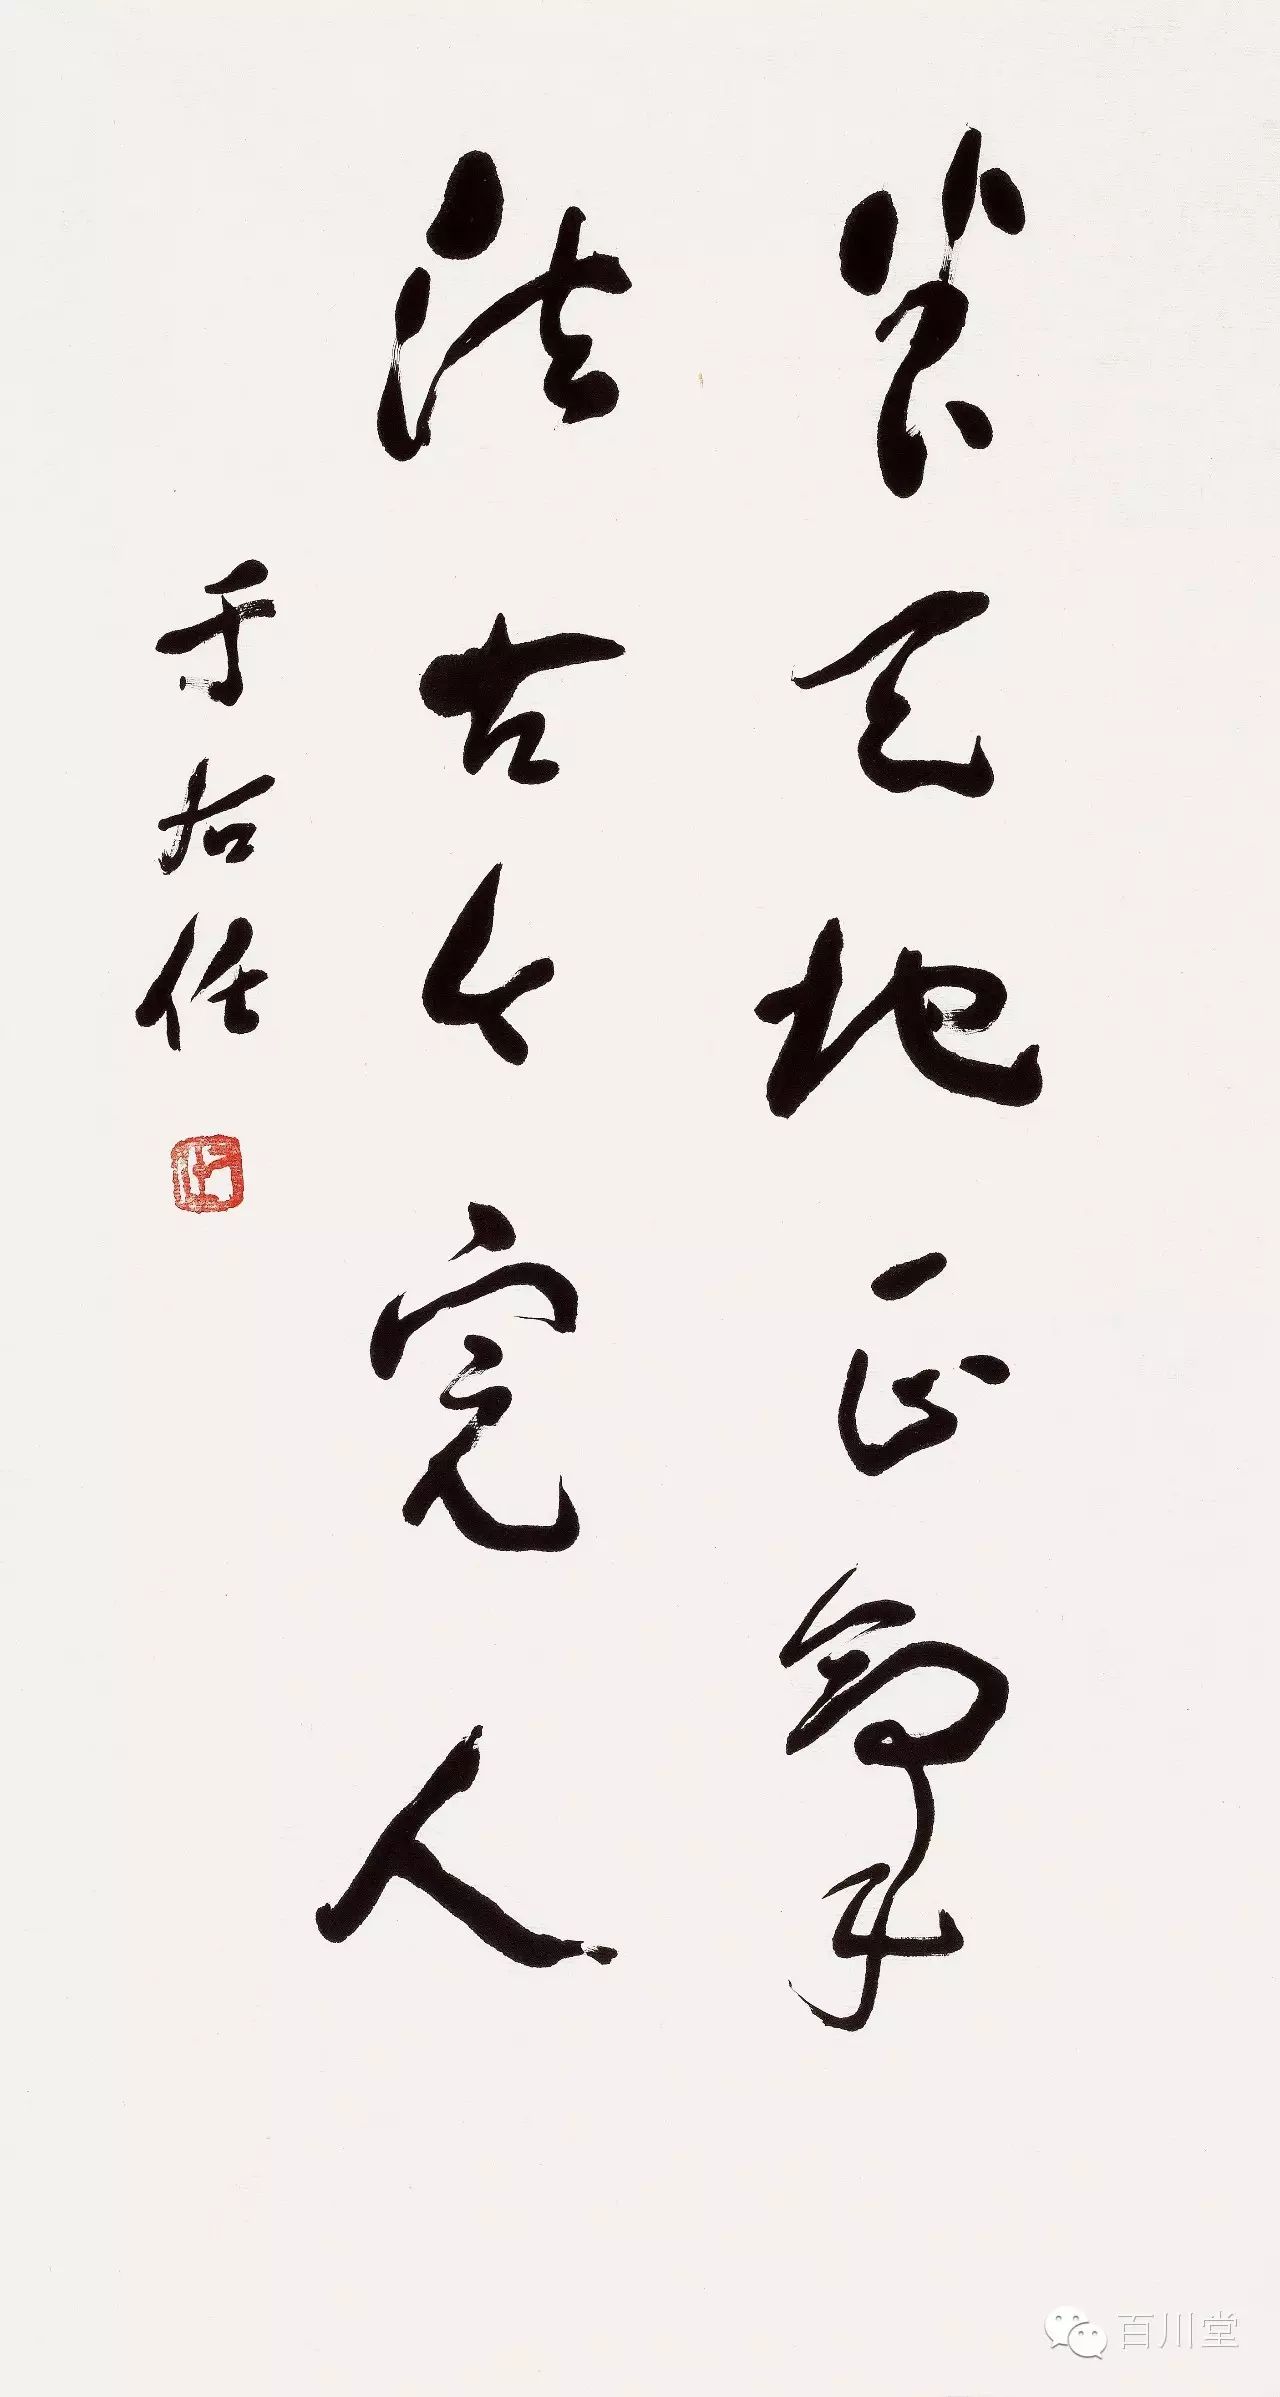 養天地正氣
法古今完人
于右任
百川堂